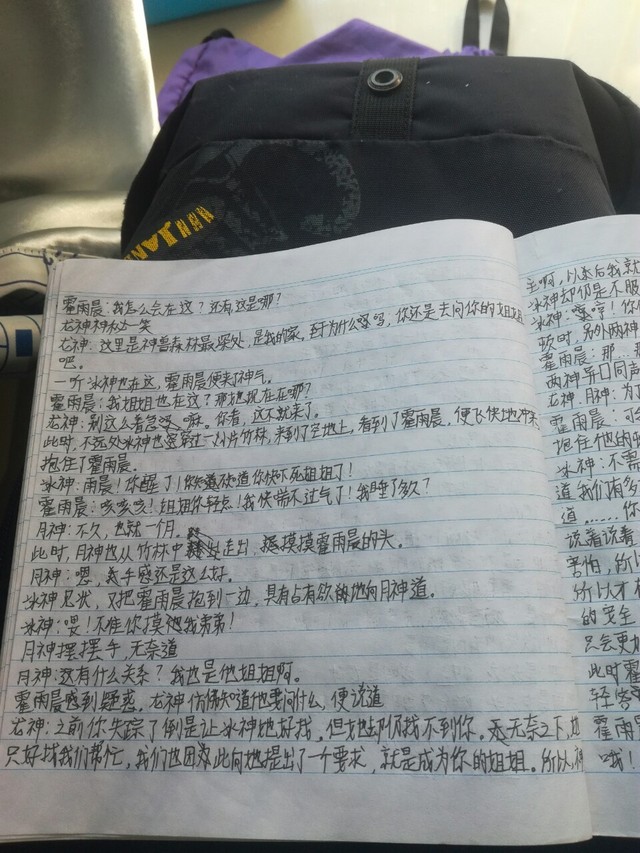 霍雨晨：我怎么会在这？还有这是哪？
龙神神秘一笑
龙神：这里是神兽森林最深处，是我的家。至于为什么嘛，你还是去问你的姐姐
吧。
一听冰神也在这，霍雨晨便来了神气。
霍雨晨：我姐姐也在这？那她现在在哪？
龙神：别这么着急嘛。你看，这不就来了。
此时，不远处冰神也穿过一片竹林，来到了空地上，看到了霍雨晨，便飞快地冲来
抱住了霍雨晨。
冰神：雨晨！你醒了！你知道不知道你快吓死姐姐了！
霍雨晨：咳咳咳！姐姐你轻点！我快带不过气了！我睡了多久？
月神：不久，也就一个月。
此时，月神也从竹林中走出，摸摸霍雨晨的头。
月神：嗯，手感还是这么好。
冰神见状，又把霍雨晨抱到一边，具有占有欲的地向月神道。
冰神：喂！不准你摸我弟弟！
月神摆摆手，无奈道
月神：这有什么关系？我也是他姐姐啊。
霍雨晨感到疑惑，龙神仿佛知道他要问什么，便说道
龙神：之前你失踪了倒是让冰神她好找。但她却仍找不到你。无奈之下，她
只好找我们帮忙，我们也因此向她提出了一个要求，就是成为你的姐姐。所以，
主啊，以来后我就
冰神却仍是不服
冰神：哼！你
顿时，另外两神
霍雨晨：那…那
两神异口同声
龙神，月神：为了
霍雨晨：可
抱住他的
冰神：不需
道我们有多
道……你
说着说着
害怕，所以
所以才
的安全
只会更
此时霍
轻答
霍雨
哦！